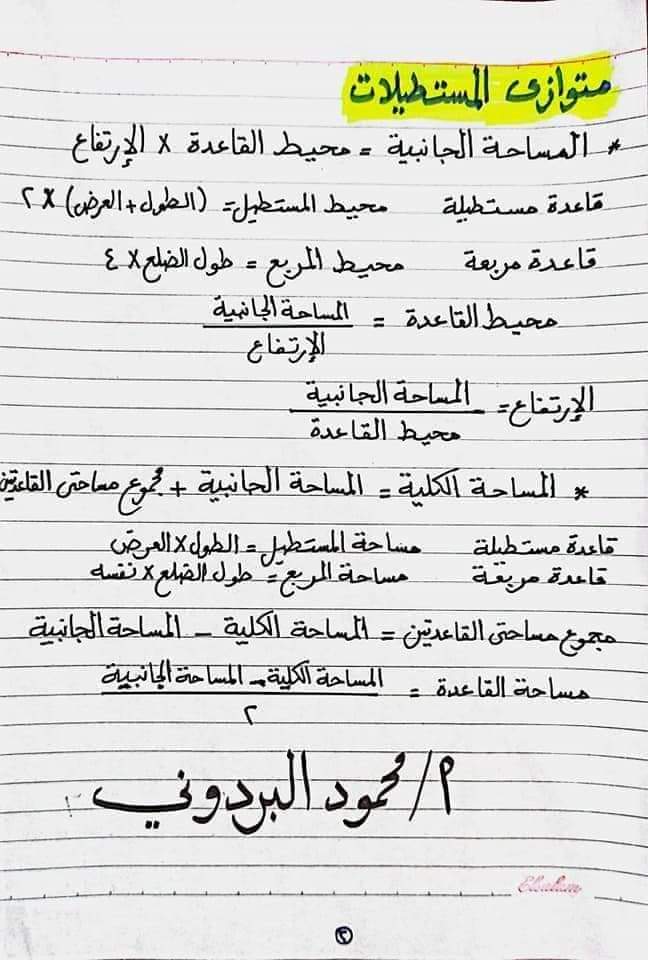 متوازى المستطيلات
* المساحة الجانبية = محيط القاعدة × الإرتفاع
قاعدة مستطيلة محيط المستطيل = (الطول + العرض) × ٢
قاعدة مربعة محيط المربع = طول الضلع × ٤
محيط القاعدة = المساحة الجانبية
الإرتفاع
الإرتفاع = المساحة الجانبية
محيط القاعدة
* المساحة الكلية = المساحة الجانبية + مجموع مساحتى القاعدتين
قاعدة مستطيلة مساحة المستطيل = الطول × العرض
قاعدة مربعة مساحة المربع = طول الضلع × نفسه
مجموع مساحتى القاعدتين = المساحة الكلية - المساحة الجانبية
مساحة القاعدة = المساحة الكلية - المساحة الجانبية
٢
م/محمود البردوني
Elsalam
٢